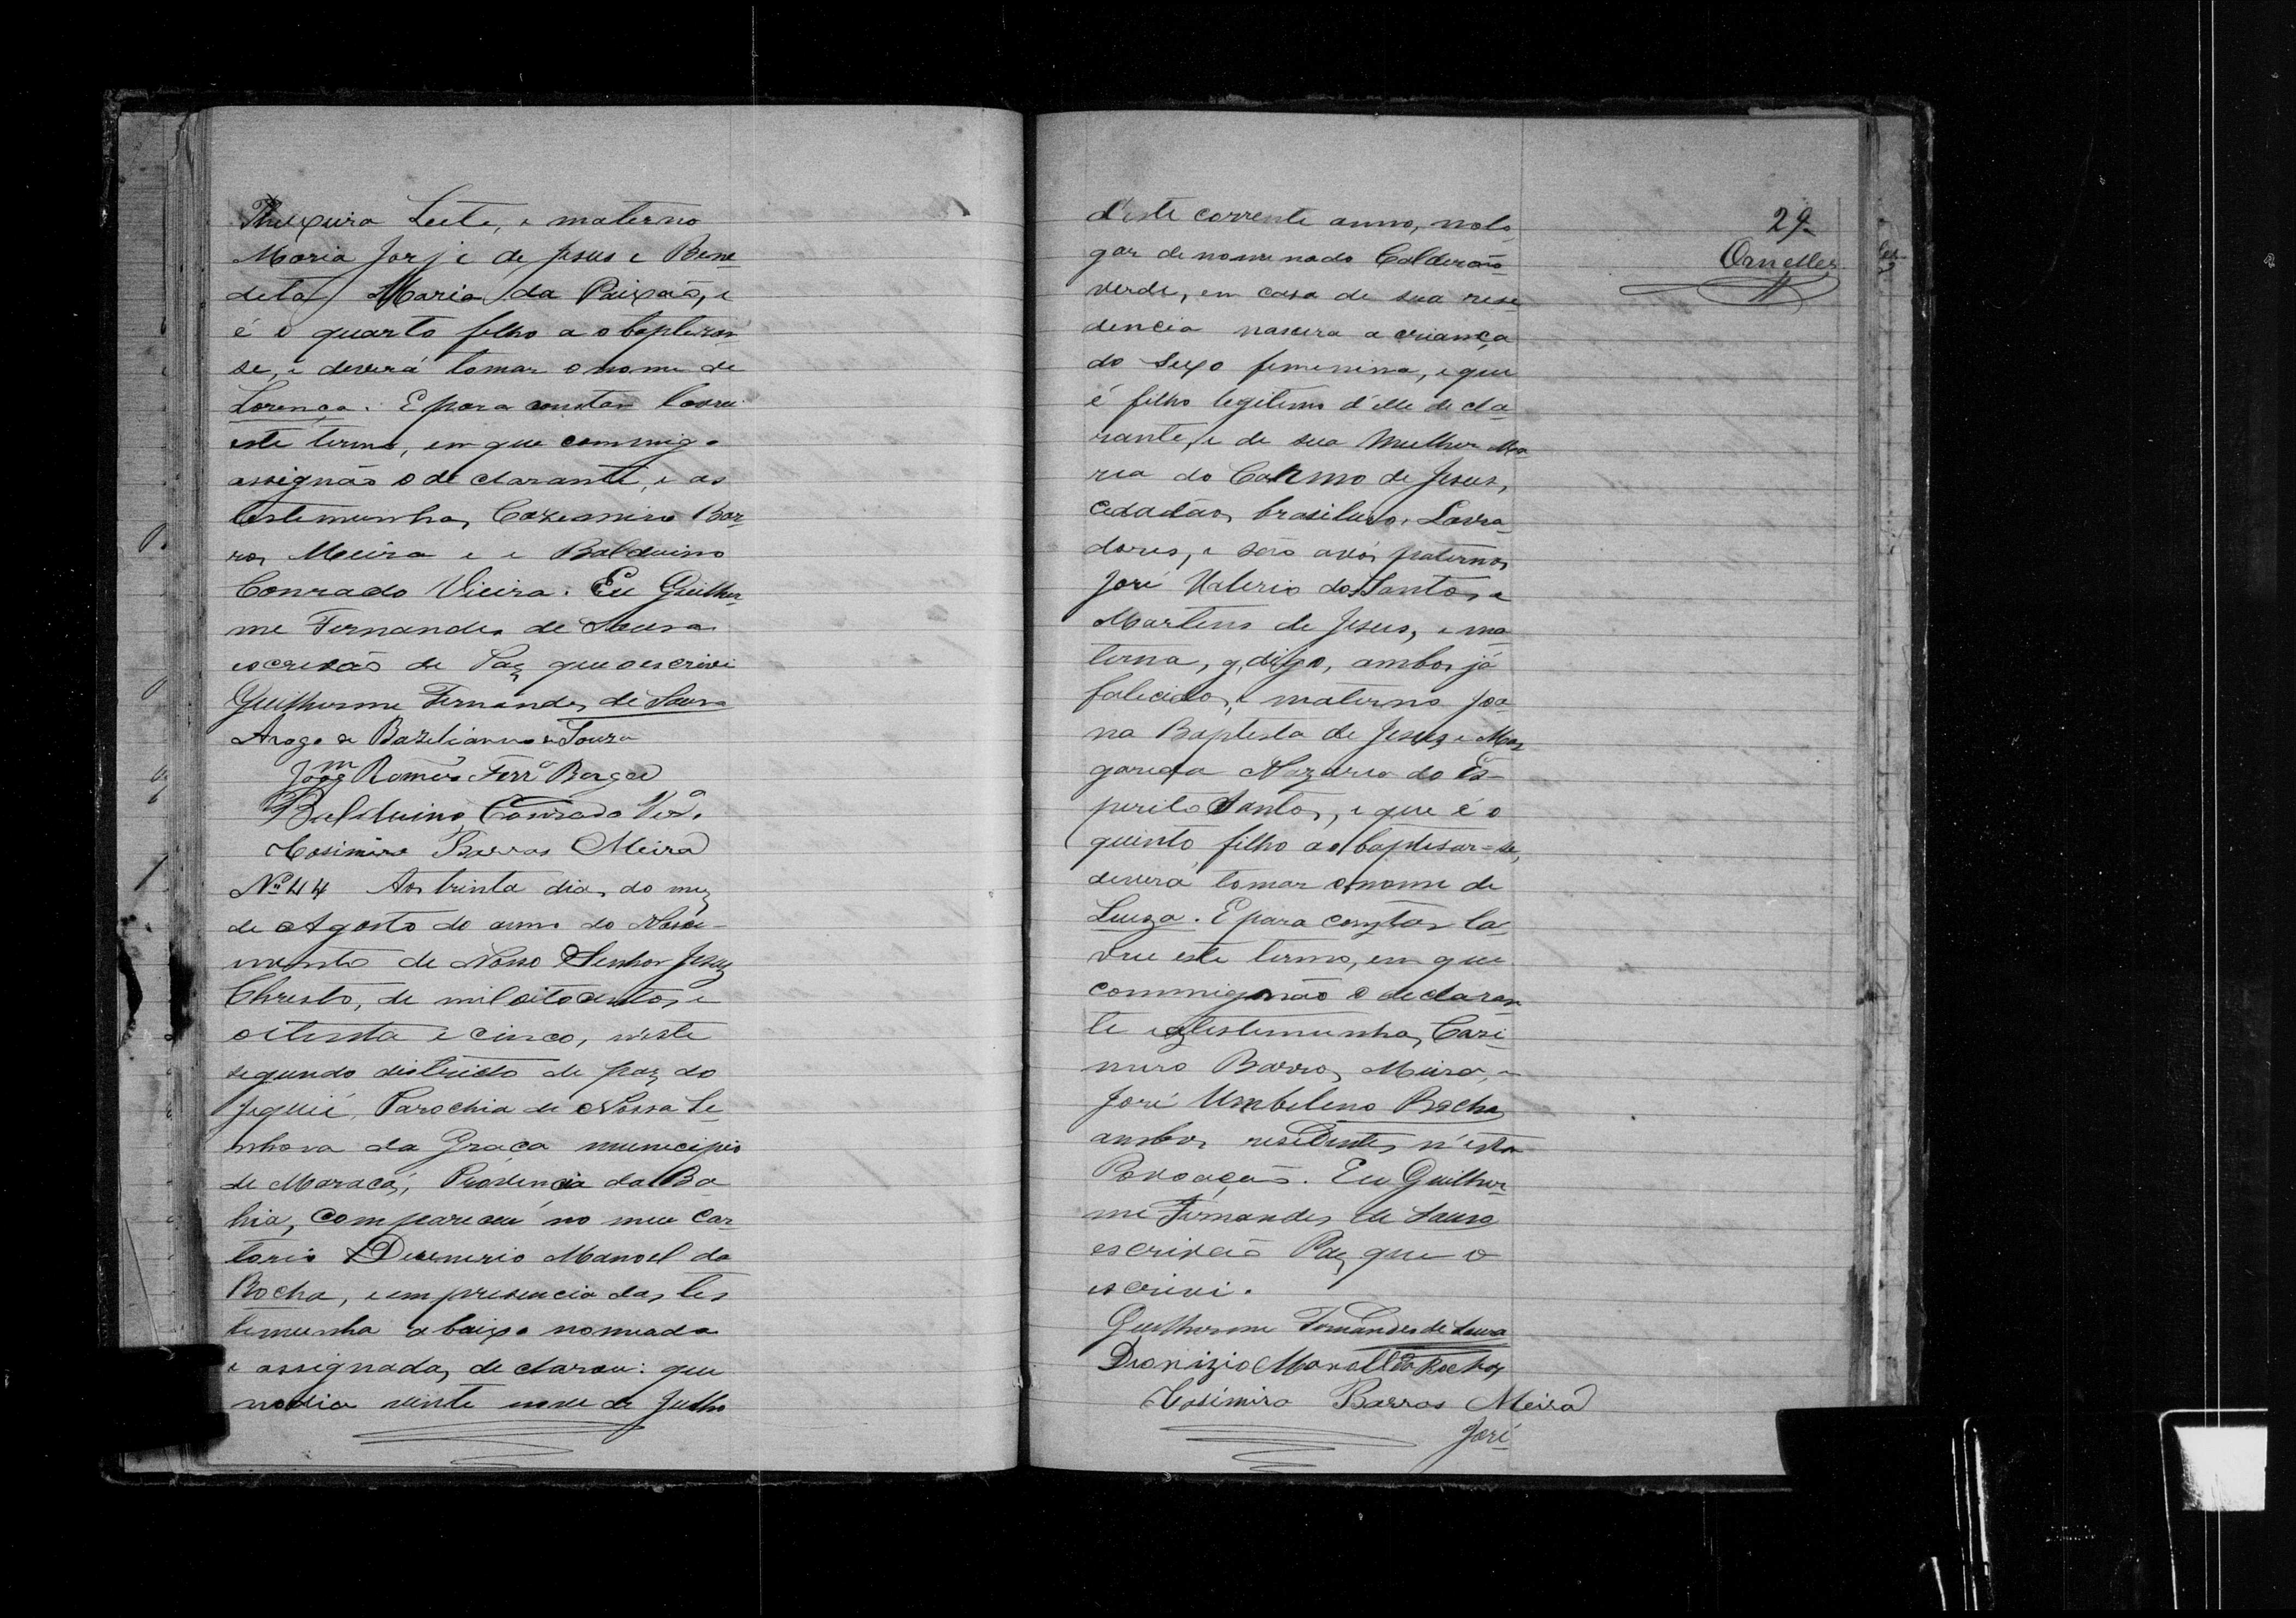 Theixeira Leite, e materno
Maria Jorje de Jesus e Bene
dcta Maria da Paixão, e
é o quarto filho a o baptisar
se, e deverá tomar o nome de
Lorença. E para constar lavrei
este termo, em que commigo
assignão o declarante, e as
testemunhas Cazimiro Bar
ros Meira e e Balduino
Conrado Vieira. Eu Guilher
me Fernandes de Sousa
escrivão de Paz que o escrivi
Guilherme Fernandes de Sousa
Arogo de Bazilianno de Souza
Joqm Romão Ferrª Borges
Balduino Conrado Vrª.
Cosimiro Barros Meira
Nº 44 Aos trinta dias do mez
de Agosto do anno do Nasci-
mento de Nosso Senhor Jesuz
Christo, de mil oitocentos e
oitenta e cinco, n'este
segundo districto de paz do
Jequié, Parochia de Nossa Se
nhora da Graça municipio
de Maracás, Provincia da Ba
hia, compareceu no meu Car
torio Manoel da
Rocha, e em presencia das tes
temunha abaixo nomeada
e assignadas declarou: que
no dia vinte nove de Julho
29
Ornellas
d'este corrente anno, no lo
gar denominado Calderão
verde, em casa de sua rese
dencia nascera a criança
do sexo feminina, e que
é filho legitimo d'elle decla
rante, e de sua mulher Ma
ria do Carmo de Jesus,
Cidadãos brasileiros, Lavra
dores, e são avós paternos
José Valerio dos Santos e
Martins de Jesus, e ma
terna, q, digo, ambos já
falecidos, e materno Joa
na Baptista de Jesus e Mar
garida Nazaria do Es
perito Santo, e que é o
quinto filho ao baptisar-se,
devera tomar o nome de
Luiza. E para constar la
vrei este termo, em que
commignão o declaran
te e as testemunhas Casi
miro Barros Meira, e
José Umbelino Rocha
ambos residentes n'esta
Povoação. Eu Guilher
me Fernandes de Sousa
escrivão Paz que o
escrivi.
Guilherme Fernandes de Sousa
Dionizio Manoel da Rocha
Cosimiro Barros Meira
José